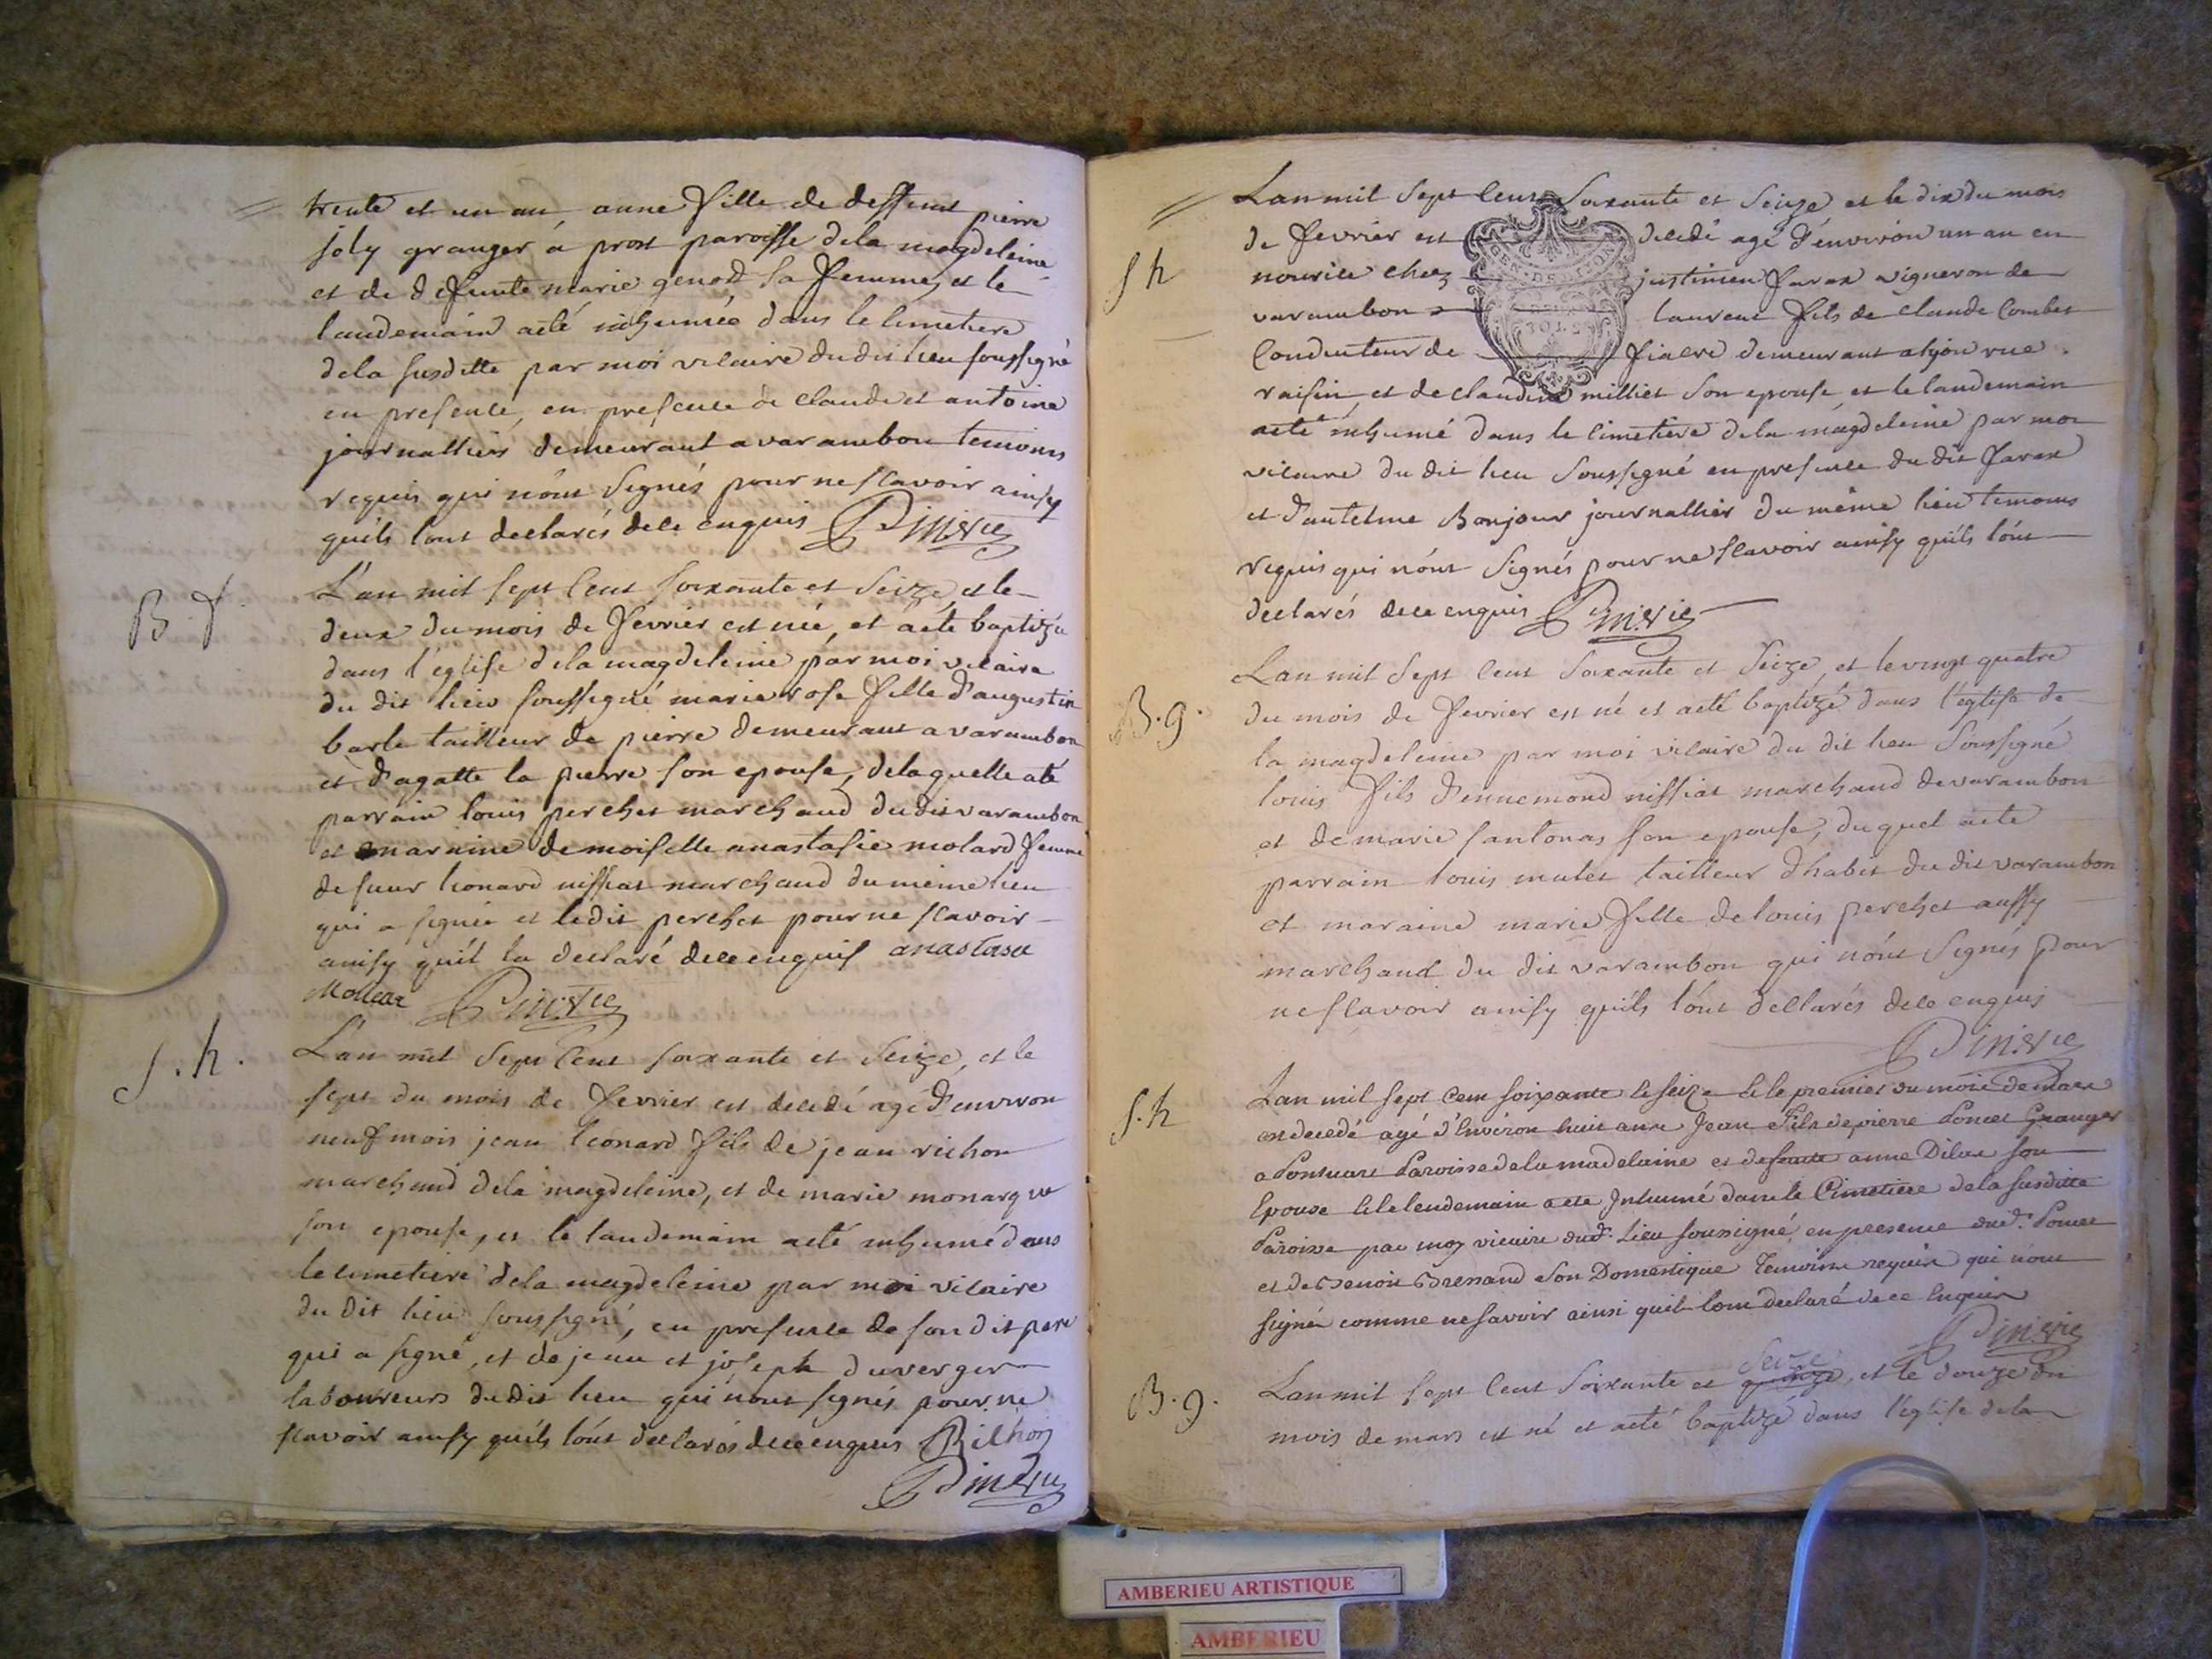 trente et un an anne fille de deffunt pierre
joly granger a prost paroisse dela magdeleine
et de defunte marie genod sa femme, et le
landemain aeté inhumée dans le cimetiere
dela susditte par moi vicaire du dit lieu soussigné
en presence, en presence de claude et antoine
journalliers demeurant a varambon temoins
requis qui n'ont signés pour ne scavoir ainsy
quils l'ont declarés de ce enquis Pinerie
B f.
L'an mil sept cent soixante et seize, et le
deux du mois de fevrier est née, et aeté baptizée
dans l'eglise dela magdeleine par moi vicaire
du dit lieu soussigné marie rose fille d'augustin
barle tailleur de pierre demeurant a varambon
et d'agatte la pierre son epouse, de laquelle a été
parrain louis perchet marchand du dit varambon
et marnine demoiselle anastasie molard femme
de sieur leonard niffiat marchand du meme lieu
qui a signée et ledit perchet pour ne scavoir
ainsy quil la declaré de ce enquis anastasie
Mollear Pinerie
S. h.
L'an mil sept cent soixante et seize, et le
sept du mois de fevrier est decedé agé d'environ
neuf mois jean leonard fils de jean richon
marchand dela magdeleine, et de marie monarque
son epouse, et le landemain aeté inhumé dans
le cimetiere dela magdeleine par moi vicaire
du dit lieu soussigné, en presence de son dit pere
qui a signé, et de jean et joseph duverger
laboureurs du dit lieu qui n'ont signés pour ne
scavoir ainsy quils l'ont declarés de ce enquis Richon
Pinerie
S h
Lan mil sept cent soixante et seize et le dix du mois
de fevrier est decedé agé d'environ un an en
nourice chez justinien farax vigneron de
varambon laurent fils de claude Combet
Conducteur de fiacre demeurant a lyon rue
raisin et de claudine milliet son epouse et le landemain
aeté inhumé dans le cimetiere dela magdeleine par moi
vicaire du dit lieu soussigné en presence du dit farax
et d'antelme Bonjour journallier du même lieu temoins
requis qui n'ont signés pour ne scavoir ainsy quils l'ont
declarés de ce enquis Pinerie
B. g.
Lan mil sept cent soixante et seize, et le vingt quatre
du mois de fevrier est né et aeté baptizé dans l'eglise de
la magdeleine par moi vicaire du dit lieu soussigné
louis fils d'ennemond niffiat marchand de varambon
et de marie santonas son epouse, duquel aeté
parrain louis mulet tailleur d'habit du dit varambon
et maraine marie fille de louis perchet aussy
marchand du dit varambon qui n'ont signés pour
ne scavoir ainsy quils l'ont declarés de ce enquis
Pinerie
S. h
Lan mil sept cent soixante et seize et le premier du mois de mars
est decedé agé d'environ huit ans Jean fils de pierre Poncet Granger
a Paroisse dela madelaine et de anne Dilas son
Epouse et le lendemain aeté Inhumé dans le Cimetiere dela susditte
Paroisse par moy vicaire dud.t Lieu soussigné en presence dud.t Poncet
et de Benoit Brenand son Domestique Temoins requis qui n'ont
signés comme ne savoir ainsi quils l'ont declaré de ce Enquis
Pinerie
B. g.
Lan mil sept cent soixante et quinze seize, et le douze du
mois de mars est né et aeté baptizé dans l'eglise dela
AMBERIEU ARTISTIQUE
AMBERIEU